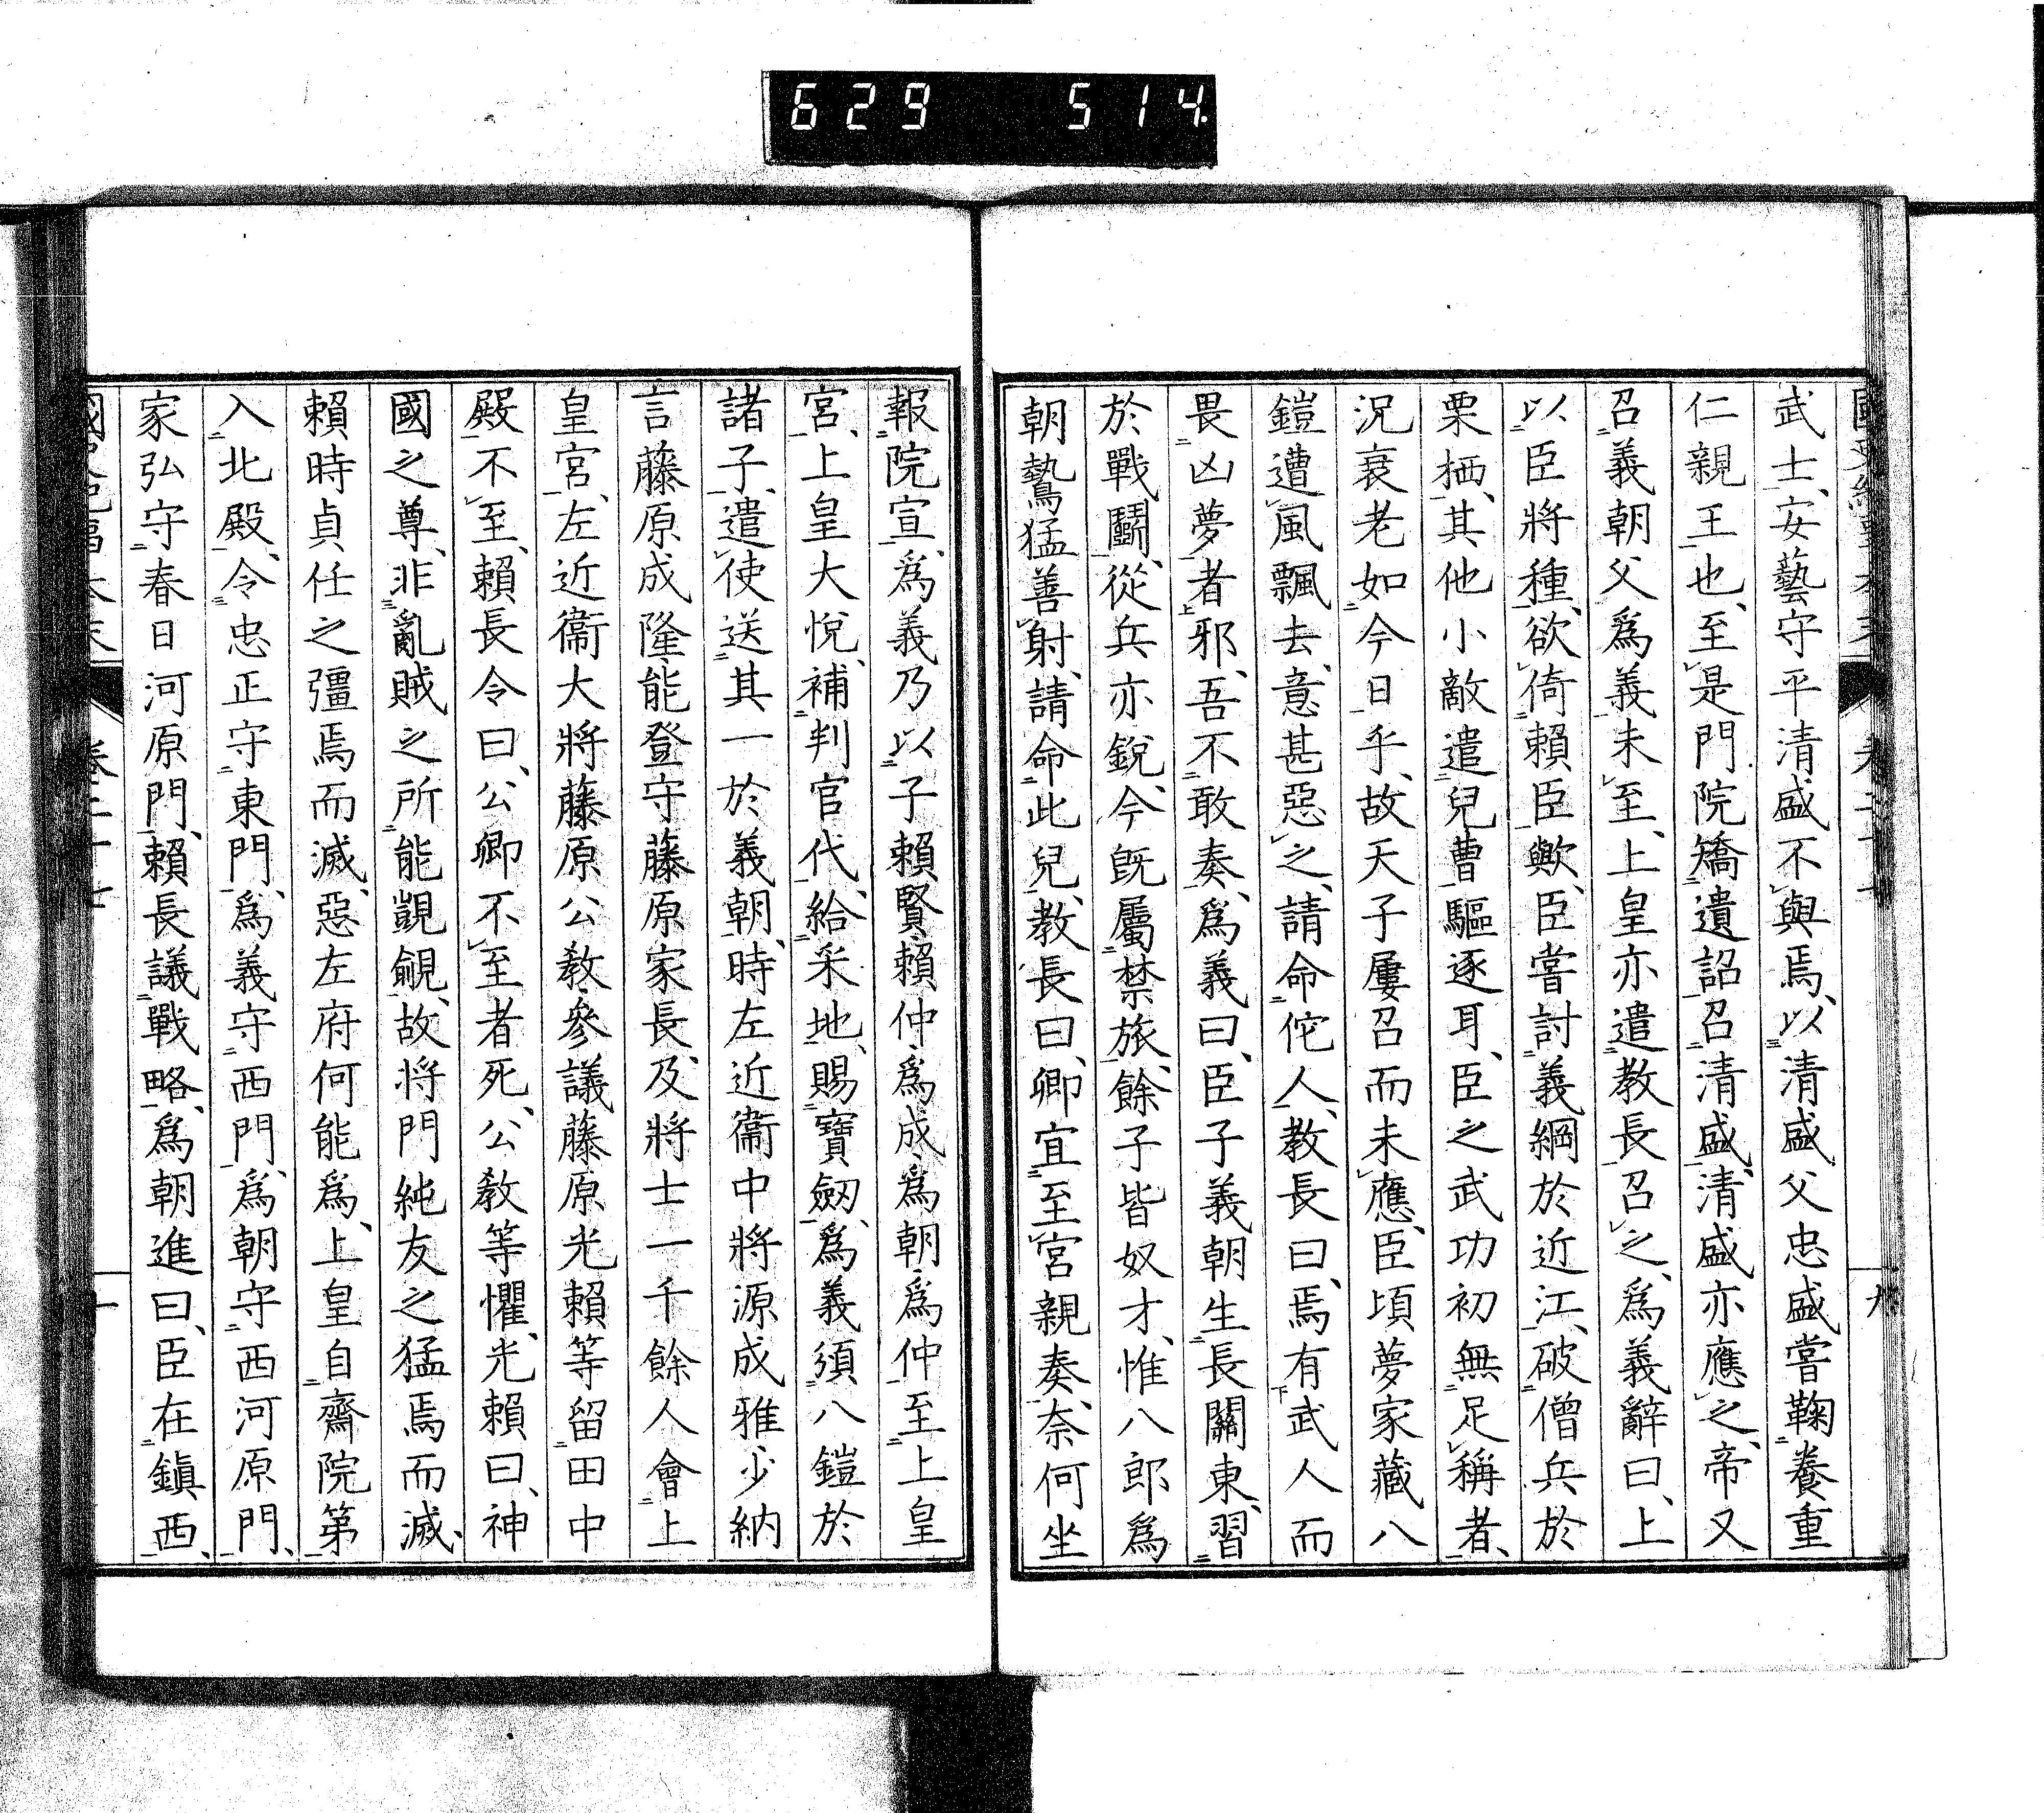 629 514
武士、安藝守平清盛不與焉、以清盛父忠盛嘗鞠養重
仁親王也、至是門院矯遺詔召清盛、清盛亦應之、帝又
召義朝父爲義未至、上皇亦遣教長召之、爲義辭曰、上
以臣將種、欲倚賴臣歟、臣嘗討義綱於近江、破僧兵於
栗栖、其他小敵遣兒曹驅逐耳、臣之武功初無足稱者、
況衰老如今日乎、故天子屢召而未應、臣頃夢家藏八
鎧遭風飄去、意甚惡之、請命佗人、教長曰、焉有武人而
畏凶夢者邪、吾不敢奏、爲義曰、臣子義朝生長關東、習
於戰鬭、從兵亦銳、今既屬禁旅、餘子皆奴才、惟八郎爲
朝鷙猛善射、請命此兒、教長曰、卿宜至宮親奏、奈何坐
報院宣、爲義乃以子賴賢賴仲爲成爲朝爲仲至上皇
宮、上皇大悅、補判官代、給采地、賜寶劔、爲義須八鎧於
諸子、遣使送其一於義朝、時左近衞中將源成雅少納
言藤原成隆能登守藤原家長、及將士一千餘人會上
皇宮、左近衞大將藤原公教參議藤原光賴等留田中
殿不至、賴長令曰、公卿不至者死、公教等懼、光賴曰、神
國之尊、非亂賊之所能覬覦、故將門純友之猛焉而滅、
賴時貞任之彊焉而滅、惡左府何能爲、上皇自齋院第
入北殿、令忠正守東門、爲義守西門、爲朝守西河原門、
家弘守春日河原門、賴長議戰略、爲朝進曰、臣在鎭西、